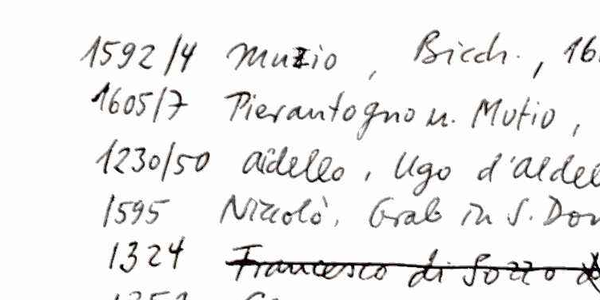 1592/4 Muzio, Bicch., 16
1605/7 Pierantogno u. Mutio,
1230/50 Aidello, Ugo d'Aldel
1595 Niccolò, Grab in S. Dom
1324 Francesco di Sozzo